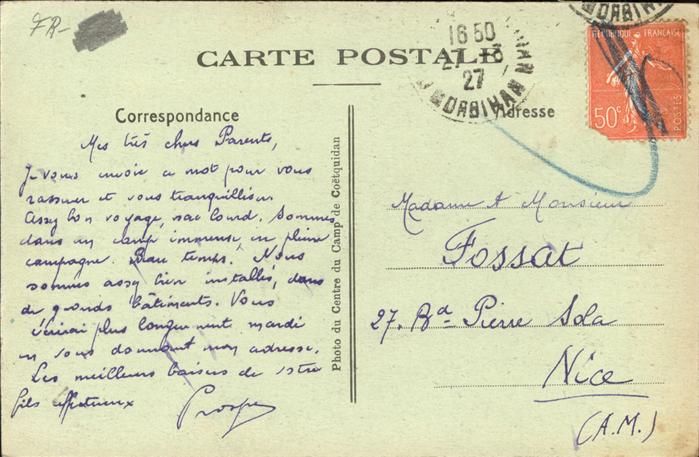 FR-
CARTE POSTALE
16 50
27 - 3
27
MORBIHAN
MORBIHAN
REPUBLIQUE FRANÇAISE
50c
POSTES
Correspondance
Adresse
Mes très chers Parents,
Je vous envoie ce mot pour vous
rassurer et vous tranquilliser
Assez bon voyage, sac lourd. Sommes
dans un camp immense, en pleine
campagne. Beau temps. Nous
sommes assez bien installés, dans
de grands bâtiments. Vous
écrirai plus longuement mardi
en vous donnant mon adresse.
Les meilleurs baisers de votre
fils affectueux Prosper
Photo du Centre du Camp de Coëtquidan
Madame et Monsieur
Fossat
27. Bd Pierre Sola
Nice
(A.M.)